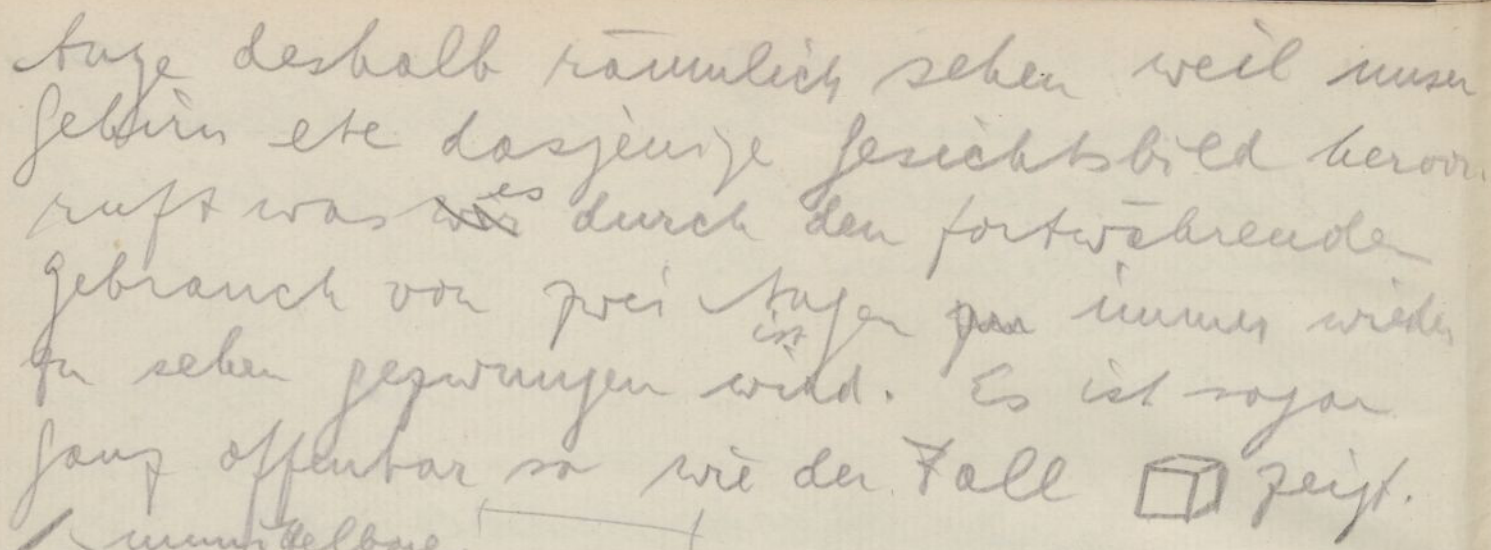 Auge deshalb räumlich sehen weil unser
Gehirn etc dasjenige Gesichtsbild hervor-
ruft was wir es durch den fortwährenden
Gebrauch von zwei Augen zu immer wieder
zu sehen gezwungen wird. ist Es ist sogar
ganz offenbar so wie der Fall zeigt.